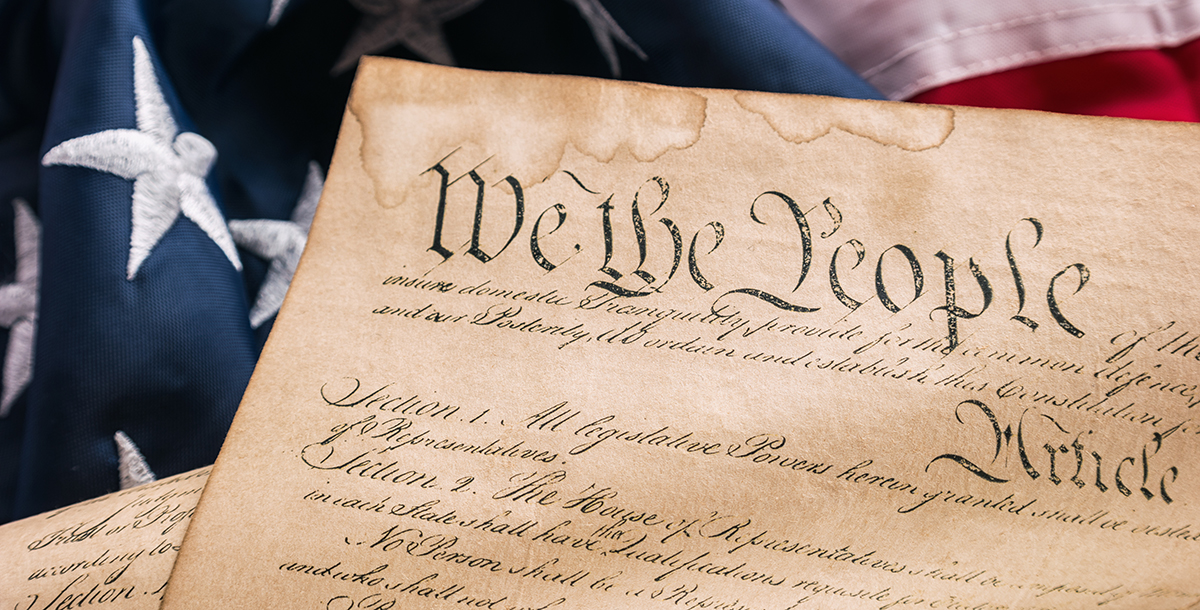 We the People of the
insure domestic Tranquility, provide for the common defence,
and our Posterity, do ordain and establish this Constitution for
Article
Section. 1. All legislative Powers herein granted shall be vested
of Representatives.
Section. 2. The House of Representatives shall be composed
in each State shall have the Qualifications requisite for
No Person shall be a Represen
and who shall not
according to
Section.